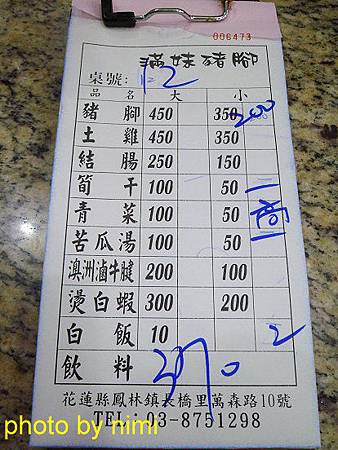 006473
滿妹豬腳
桌號: 12
品名 大 小
豬腳 450 350 200
土雞 450 350
結腸 250 150
筍干 100 50 一
青菜 100 50
苦瓜湯 100 50 一
澳洲滷牛腱 200 100
燙白蝦 300 200
白飯 10 2
飲料 370
花蓮縣鳳林鎮長橋里萬森路10號
TEL:03-8751298
photo by nimi